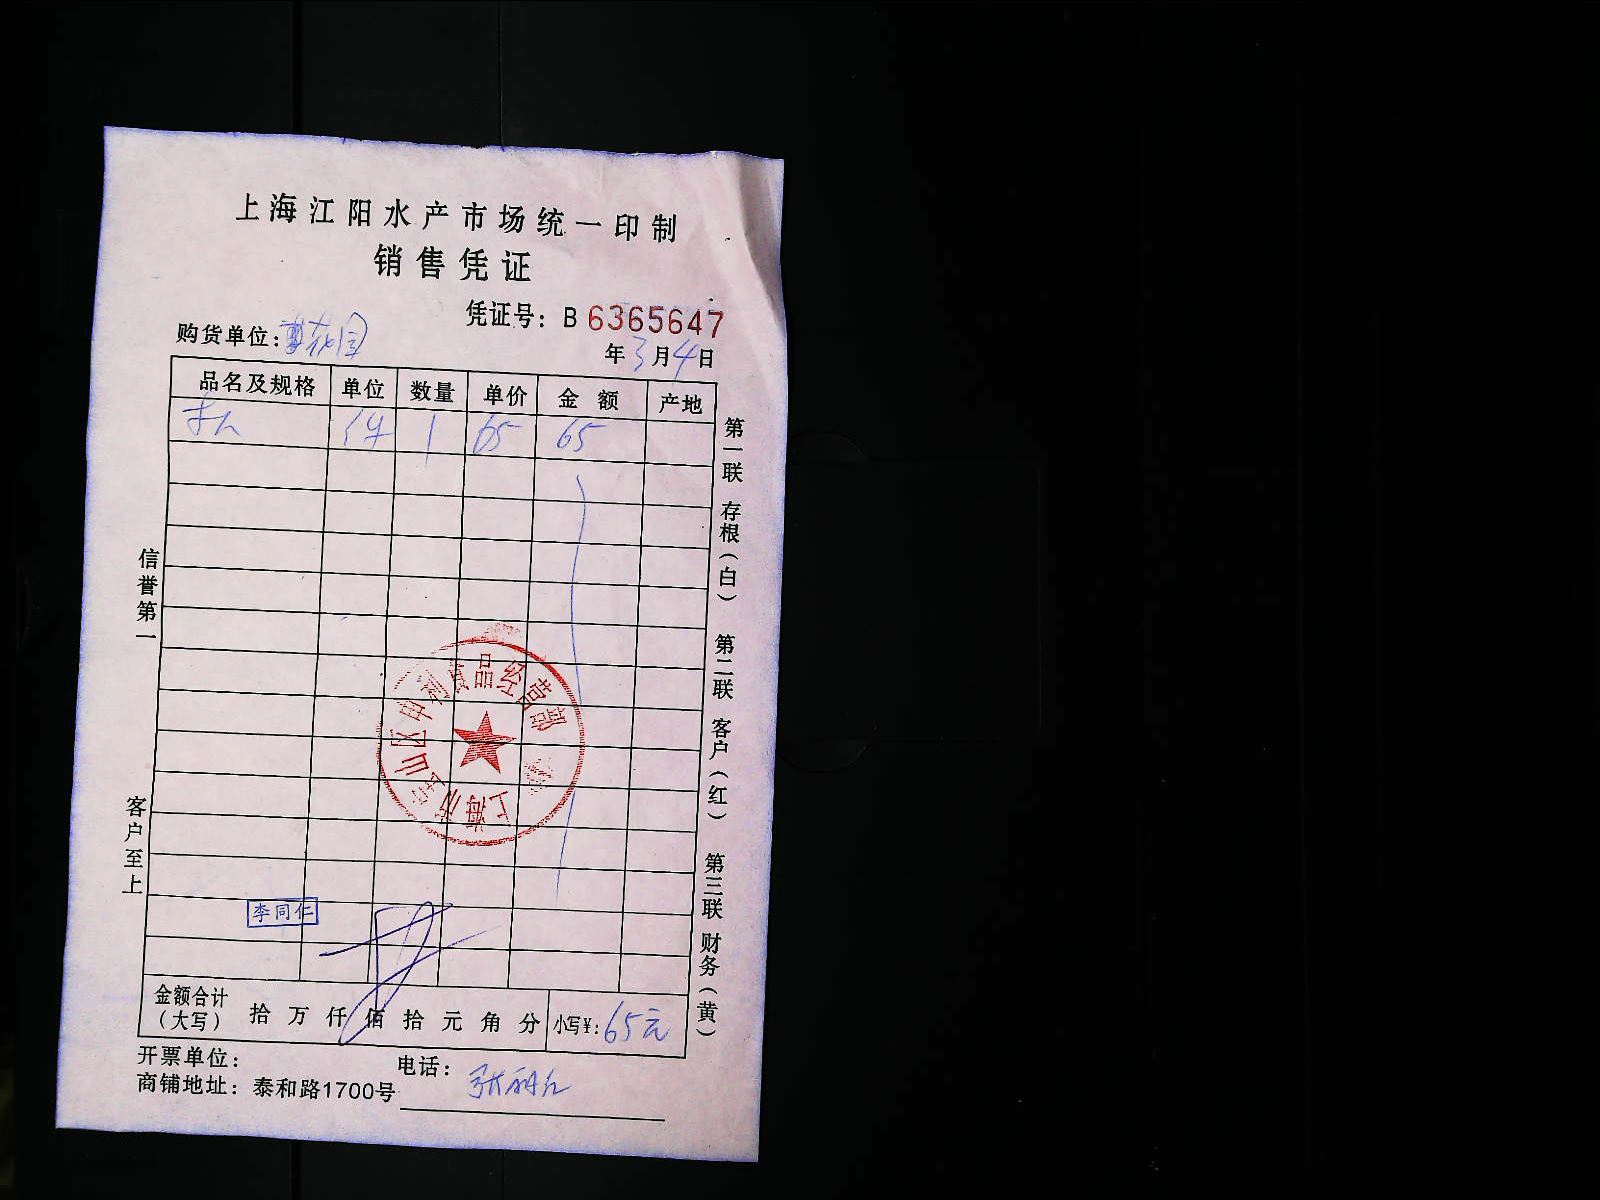 上海江阳水产市场统一印制
销售凭证
凭证号: B 6365647
购货单位: 花园
年 3 月 4 日
品名及规格 单位 数量 单价 金额 产地
件 1 65 65
第一联 存根(白) 第二联 客户(红) 第三联 财务(黄)
信誉第一 客户至上
上海市宝山区申利食品经营部
李同仁
金额合计(大写) 拾 万 仟 佰 拾 元 角 分 小写¥: 65元
开票单位: 电话:
商铺地址: 泰和路1700号